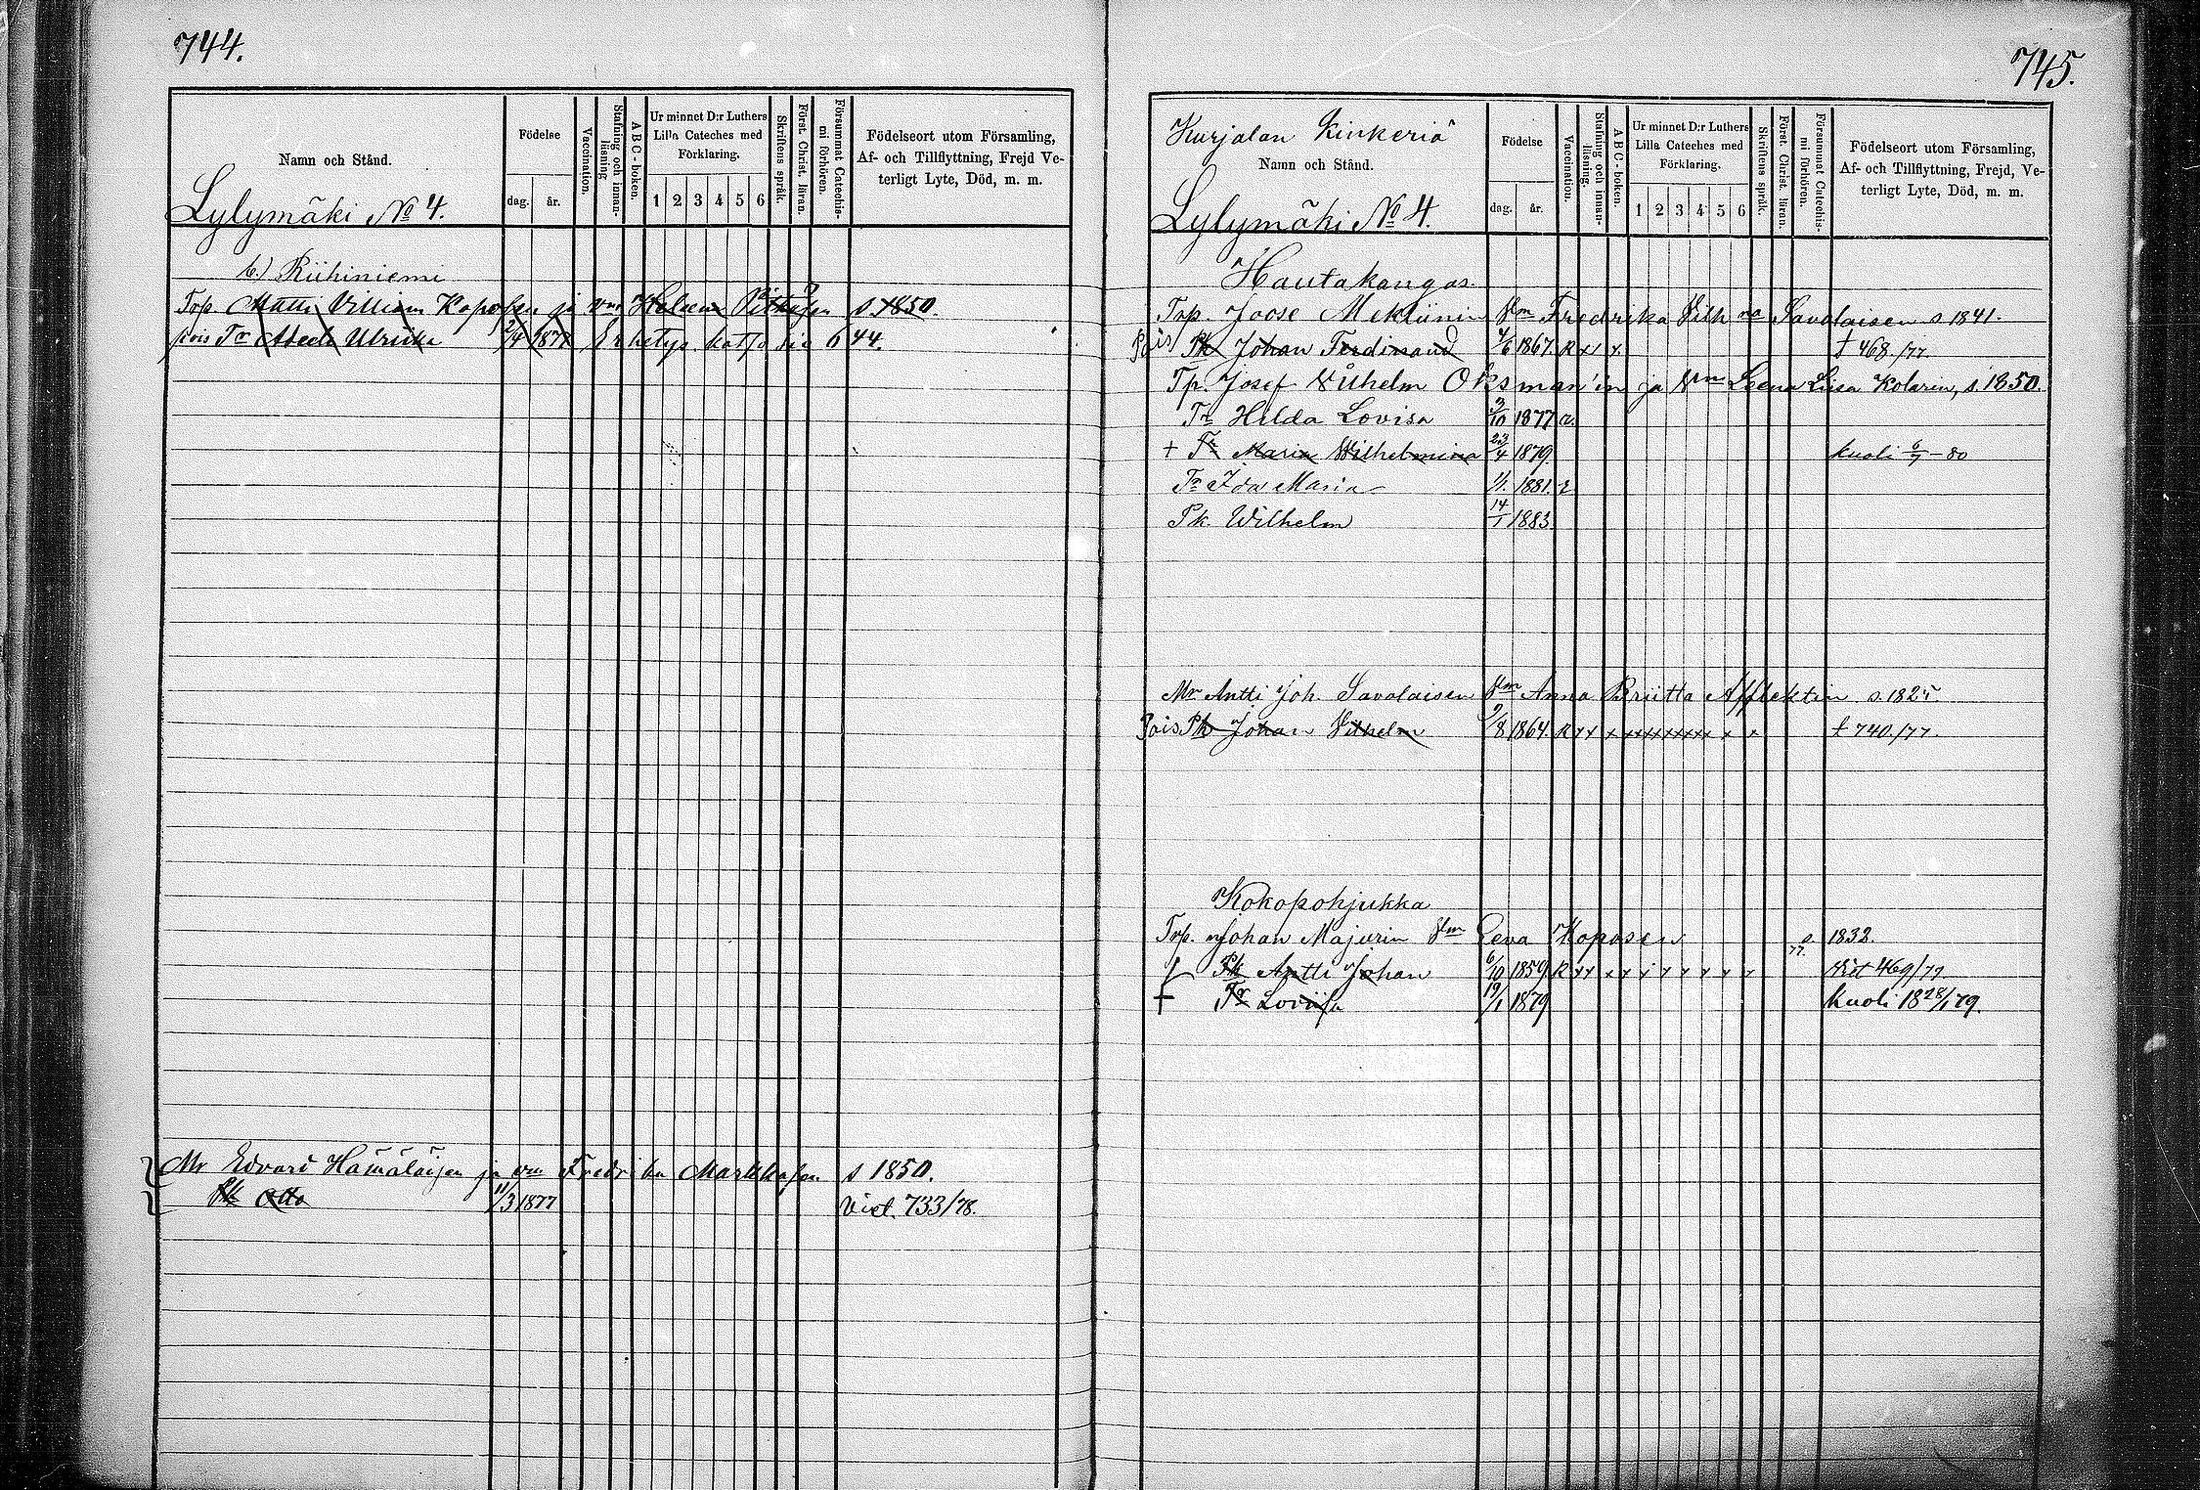 744.
Namn och Stånd.
Födelse
dag.
år.
Vaccination.
Stafning och innan-
läsning
A B C - boken.
Ur minnet D:r Luthers
Lilla Cateches med
Förklaring.
1 2 3 4 5 6
Skriftens språk.
Först. Christ. läran.
Försummat Catechis-
mi förhören.
Födelseort utom Församling,
Af- och Tillflyttning, Frejd Ve-
terligt Lyte, Död, m. m.
Lylymäki No 4.
b.) Riihiniemi
Torp. Matti Villiam Koposen ja vm Helena s. 1850.
pois Tr Ulrika 2/4 1877 Erhetys. katso siv 644.
Mr Edvard Hämäläisen ja vm Fredrika Markkasen s 1850.
Pk Otto 11/3 1877 Vid. 733/78.
745.
Kurjalan Kinkeriä
Namn och Stånd.
Födelse
dag.
år.
Vaccination.
Stafning och innan-
läsning.
A B C - boken.
Ur minnet D:r Luthers
Lilla Cateches med
Förklaring.
1 2 3 4 5 6
Skriftens språk.
Först. Christ. läran.
Försummat Catechis-
mi förhören.
Födelseort utom Församling,
Af- och Tillflyttning, Frejd, Ve-
terligt Lyte, Död, m. m.
Lylymäki No 4.
Hautakangas.
Torp. Joose Mekliinin Vm Fredrika Vilh na Savolaisen s 1841.
Pois Pk Johan Ferdinand 4/6 1867. R x x x. 468./77.
Tp. Josef Wilhelm Oksman'in ja Vm Leena Liisa Kolarin, s. 1850.
Tr Hilda Lovisa 3/10 1877 r.
+ Tr Maria Wilhelmina 23/4 1879. kuoli 6/7 - 80
Tr Ida Maria 1/1. 1881. r
Pk. Wilhelm 14/1 1883.
Mr Antti Joh. Savolaisen Vm Anna Briitta Afflektin s. 1825
Pois Pk Johan Vilhelm 9/8 1864. R x x x x x x x x x x x x x 740./77.
Kokopohjukka
Torp. Johan Majurin Vm Eeva Koposen s. 1832.
Pk Antti Johan 6/10 1859 R x x x x x x x x x x x 77. Vid 469/77
+ Tr Loviisa 19/1 1879 kuoli 18 28/1 79.